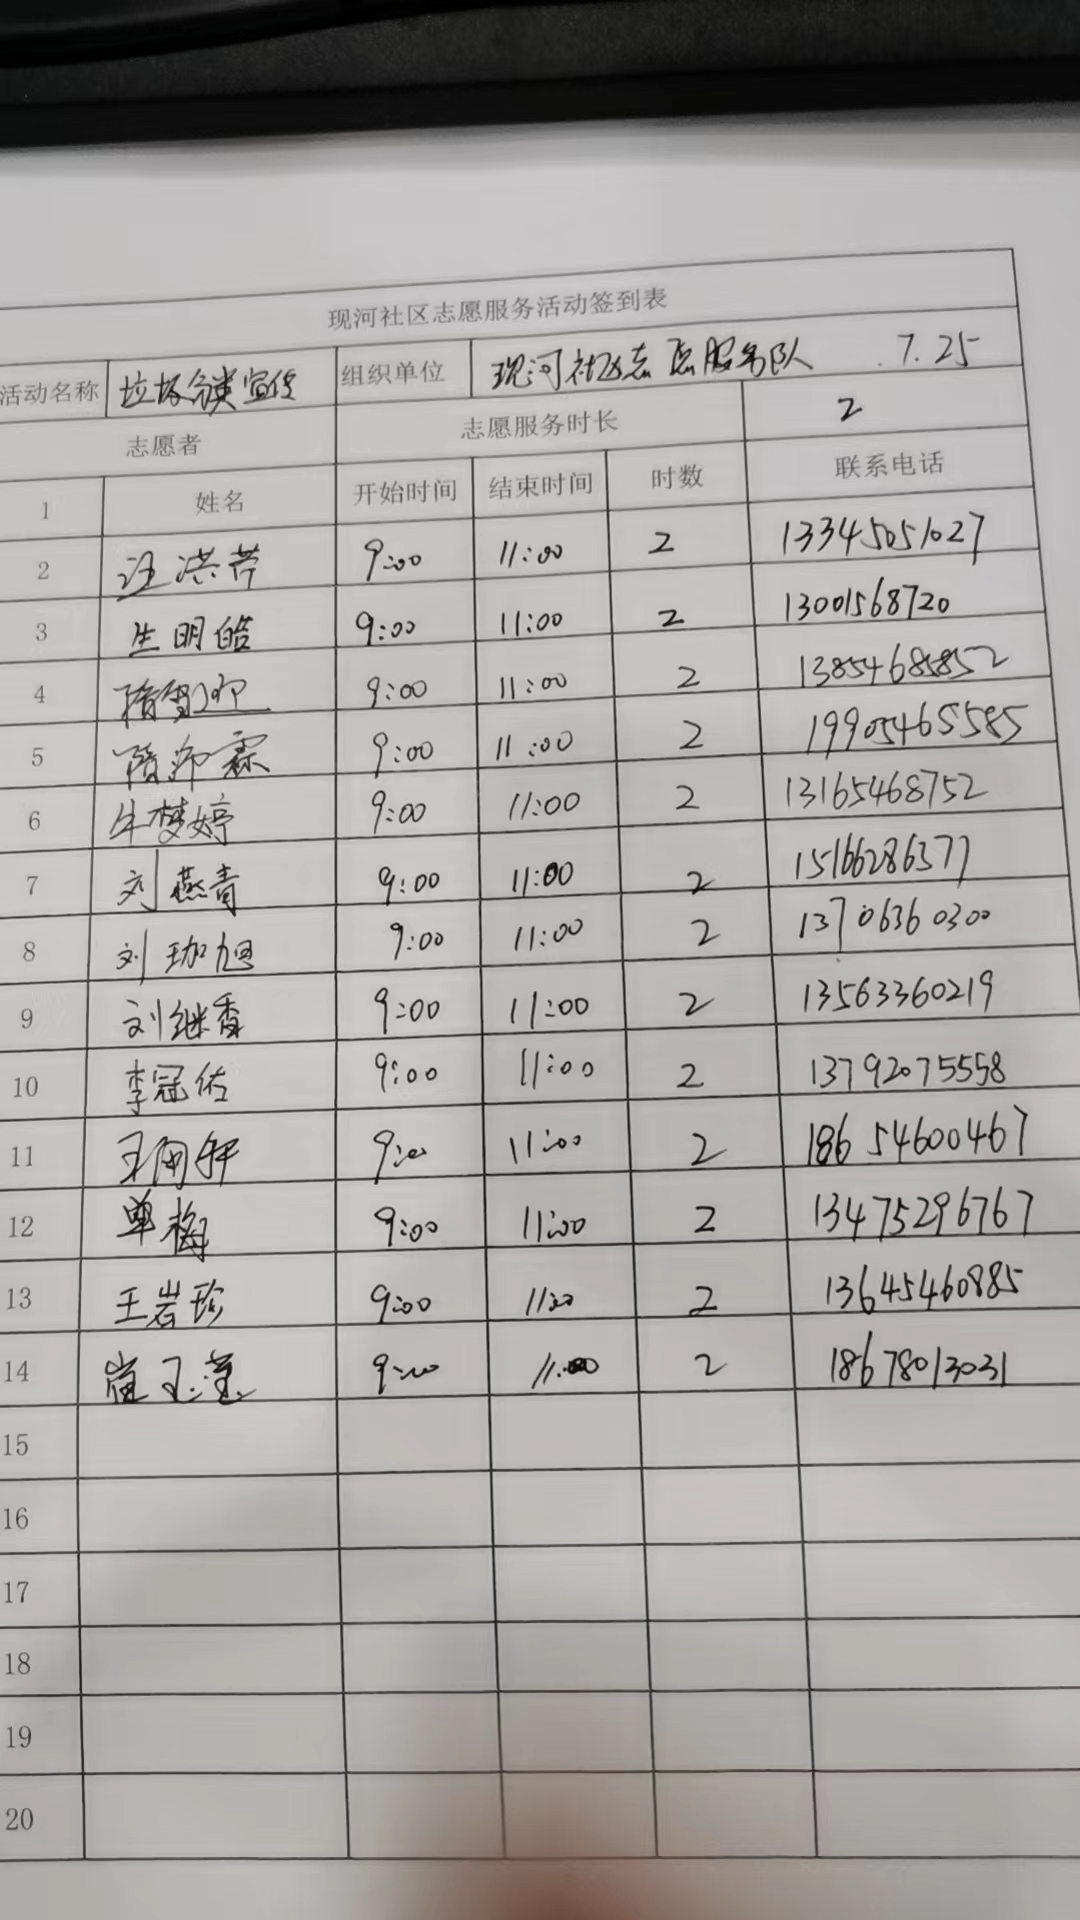 现河社区志愿服务活动签到表
活动名称 垃圾分类宣传 组织单位 现河社区志愿服务队 7.25
志愿者 志愿服务时长 2
1 姓名 开始时间 结束时间 时数 联系电话
2 汪洪芹 9:00 11:00 2 13345051027
3 生明皓 9:00 11:00 2 13001568720
4 隋 9:00 11:00 2 13854685852
5 隋 霖 9:00 11:00 2 19905465585
6 牛梦婷 9:00 11:00 2 13165468752
7 刘燕青 9:00 11:00 2 15166286377
8 刘珈旭 9:00 11:00 2 13706360300
9 刘继香 9:00 11:00 2 13563360219
10 李冠佑 9:00 11:00 2 13792075558
11 王 9:00 11:00 2 18654600467
12 单梅 9:00 11:00 2 13475296767
13 王岩珍 9:00 11:00 2 13645460885
14 崔玉莲 9:00 11:00 2 18678013031
15
16
17
18
19
20